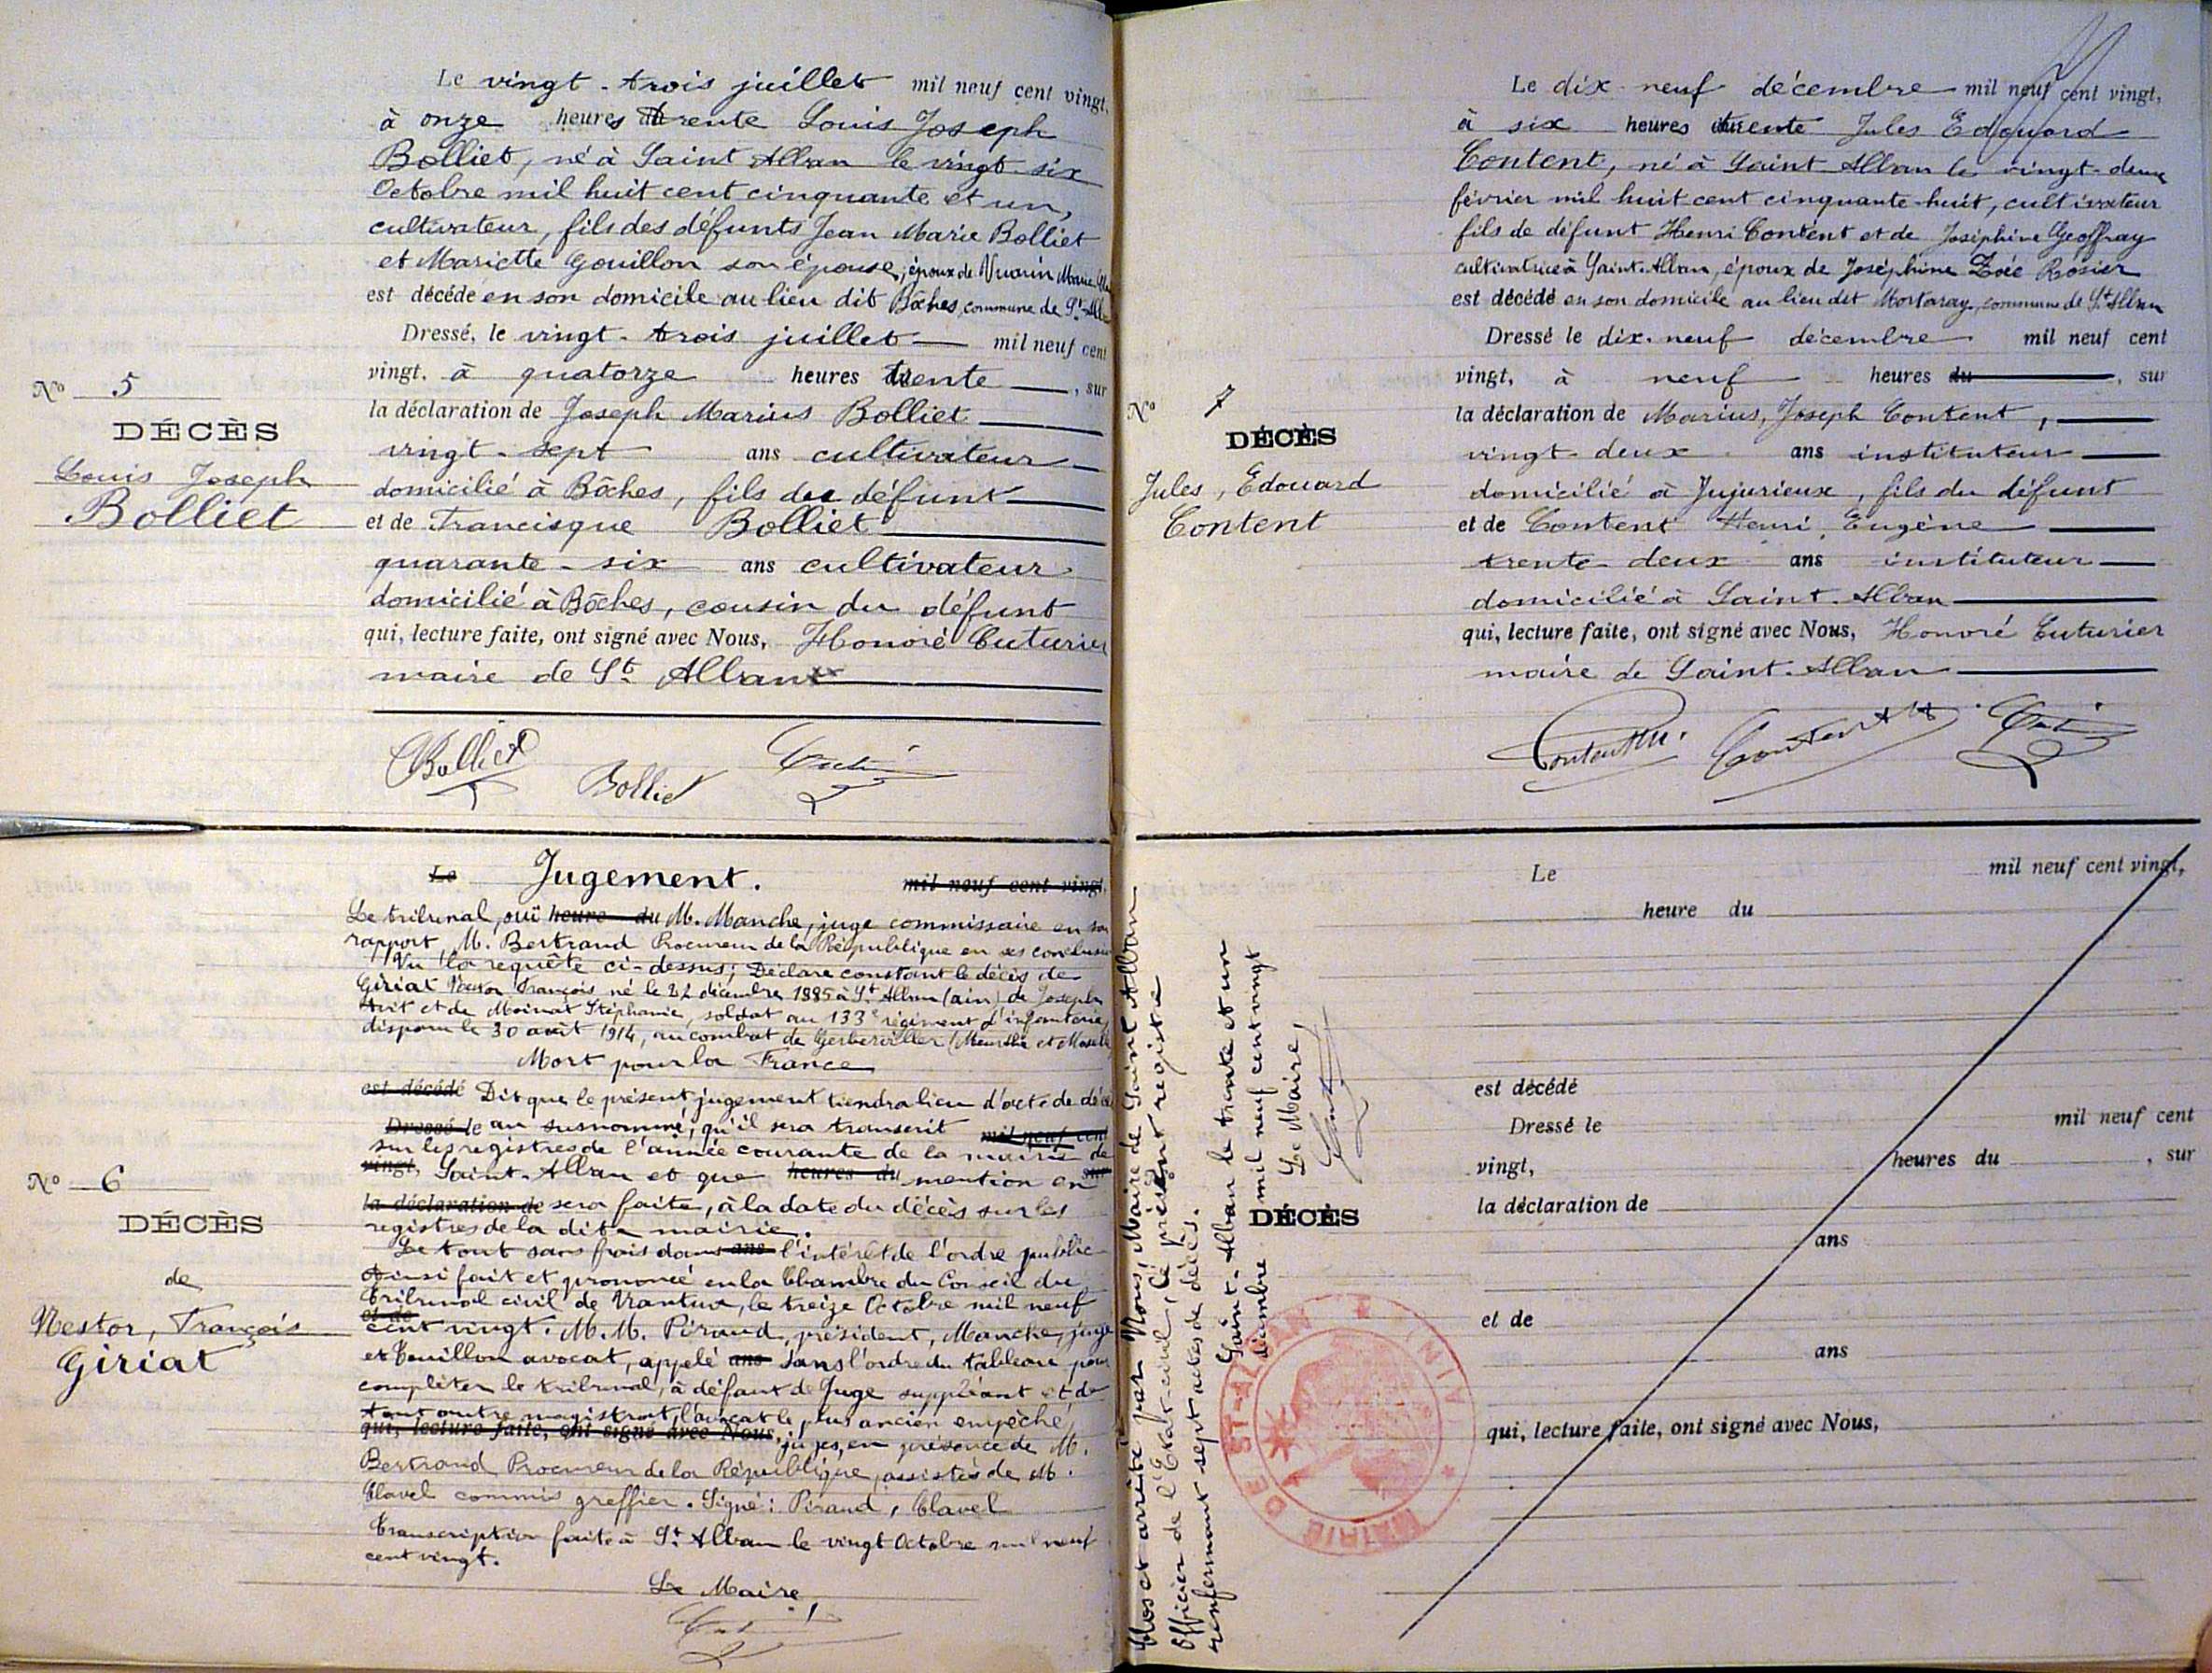 Le vingt-trois juillet mil neuf cent vingt,
à onze heures trente Louis Joseph
Bolliet, né à Saint Alban le vingt-six
Octobre mil huit cent cinquante et un,
cultivateur, fils des défunts Jean Marie Bolliet
et Mariette Gouillon son épouse, époux de Vuarin Marie
est décédé en son domicile au lieu dit Bôches, commune de St-Alban
Dressé, le vingt-trois juillet mil neuf cent
vingt, à quatorze heures trente, sur
la déclaration de Joseph Marius Bolliet
vingt-sept ans cultivateur
domicilié à Bôches, fils du défunt
et de Francisque Bolliet
quarante-six ans cultivateur
domicilié à Bôches, cousin du défunt
qui, lecture faite, ont signé avec Nous, Honoré Cuturier
maire de St Alban
Bolliet Bolliet
No 5
DÉCÈS
Louis Joseph
Bolliet
Le Jugement. mil neuf cent vingt,
Le tribunal, ouï heure du M. Manche, juge commissaire en son
rapport, M. Bertrand Procureur de la République en ses conclusions
Vu la requête ci-dessus; Déclare constant le décès de
Giriat Nestor François né le 22 décembre 1885 à St Alban (ain) de Joseph
et de Moinat Stéphanie, soldat au 133e régiment d'infanterie,
disparu le 30 août 1914, au combat de Gerberviller (Meurthe et Moselle
Mort pour la France
est décédé Dit que le présent jugement tiendra lieu d'acte de décès
Dressé le au susnommé, qu'il sera transcrit mil neuf cent
sur les registres de l'année courante de la mairie de
vingt, Saint-Alban et que heures du mention en sur
la déclaration de sera faite, à la date du décès sur les
registres de la dite mairie.
Le tout sans frais dans ans l'intérêt de l'ordre public
Ainsi fait et prononcé en la Chambre du Conseil du
Tribunal civil de Nantua, le treize Octobre mil neuf
et de
cent vingt. M.M. Piraud, président, Manche, juge
et Touillon avocat, appelé ans dans l'ordre du tableau pour
compléter le tribunal, à défaut de Juge suppléant et de
tout autre magistrat, l'avocat le plus ancien empêché,
qui, lecture faite, ont signé avec Nous, juges, en présence de M.
Bertrand Procureur de la République, assistés de M.
Clavel commis greffier. Signé: Piraud, Clavel
Transcription faite à St Alban le vingt Octobre mil neuf
cent vingt.
Le Maire,
No 6
DÉCÈS
de
Nestor, François
Giriat
Le dix-neuf décembre mil neuf cent vingt,
à six heures trente Jules Edouard
Content, né à Saint Alban le vingt-deux
février mil huit cent cinquante-huit, cultivateur
fils de défunt Henri Content et de Joséphine Geoffray
cultivatrice à Saint-Alban, époux de Joséphine Zoée Rosier
est décédé en son domicile au lieu dit Mortaray, commune de St Alban
Dressé le dix-neuf décembre mil neuf cent
vingt, à neuf heures du, sur
la déclaration de Marius, Joseph Content,
vingt-deux ans instituteur
domicilié à Jujurieux, fils du défunt
et de Content Henri, Eugène
trente-deux ans instituteur
domicilié à Saint-Alban
qui, lecture faite, ont signé avec Nous, Honoré Cuturier
maire de Saint-Alban
No 7
DÉCÈS
Jules, Edouard
Content
Le mil neuf cent vingt,
heure du
est décédé
Dressé le mil neuf cent
vingt, heures du, sur
la déclaration de
ans
et de
ans
qui, lecture faite, ont signé avec Nous,
DÉCÈS
Clos et arrêté par Nous, Maire de Saint Alban
Officier de l'Etat-civil, le présent registre
renfermant sept actes de décès.
Saint-Alban le trente et un
décembre mil neuf cent vingt
Le Maire,
MAIRIE DE ST-ALBAN
AIN